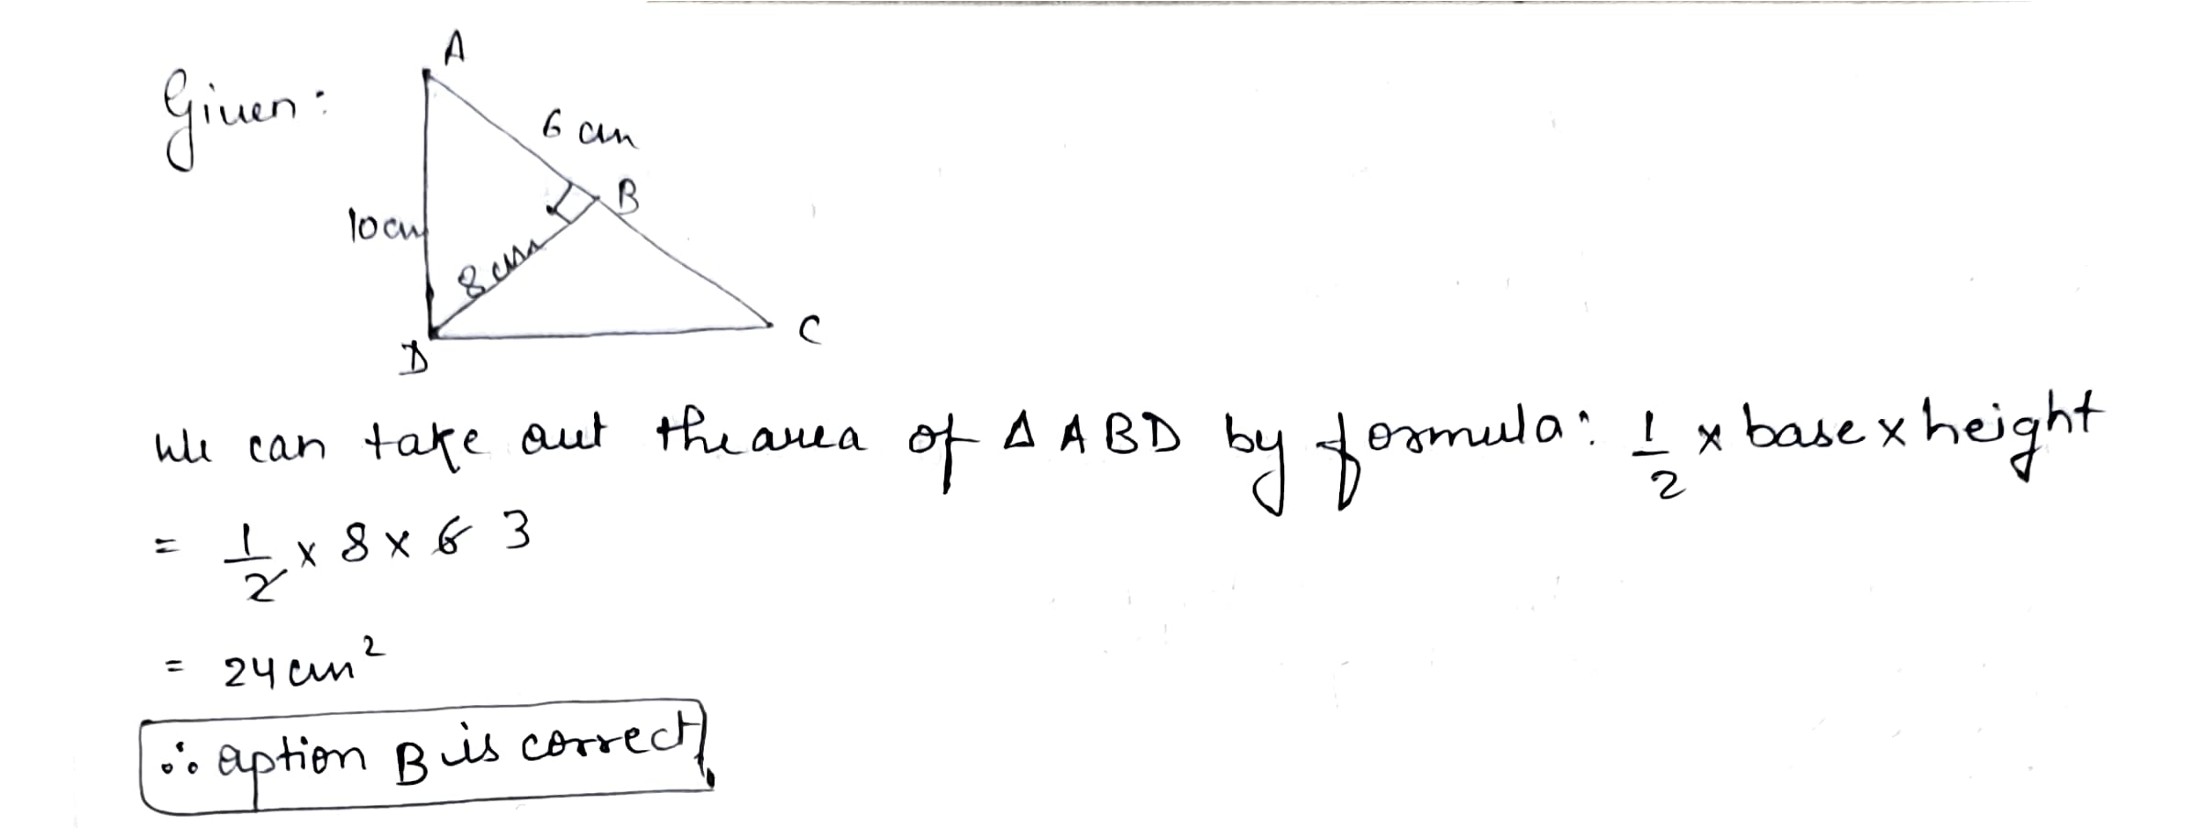 Given:
A
6 cm
B
10cm
8 cm
D
C
We can take out the area of Δ ABD by formula: 1/2 x base x height
= 1/2 x 8 x 6 3
= 24 cm²
∴ option B is correct.